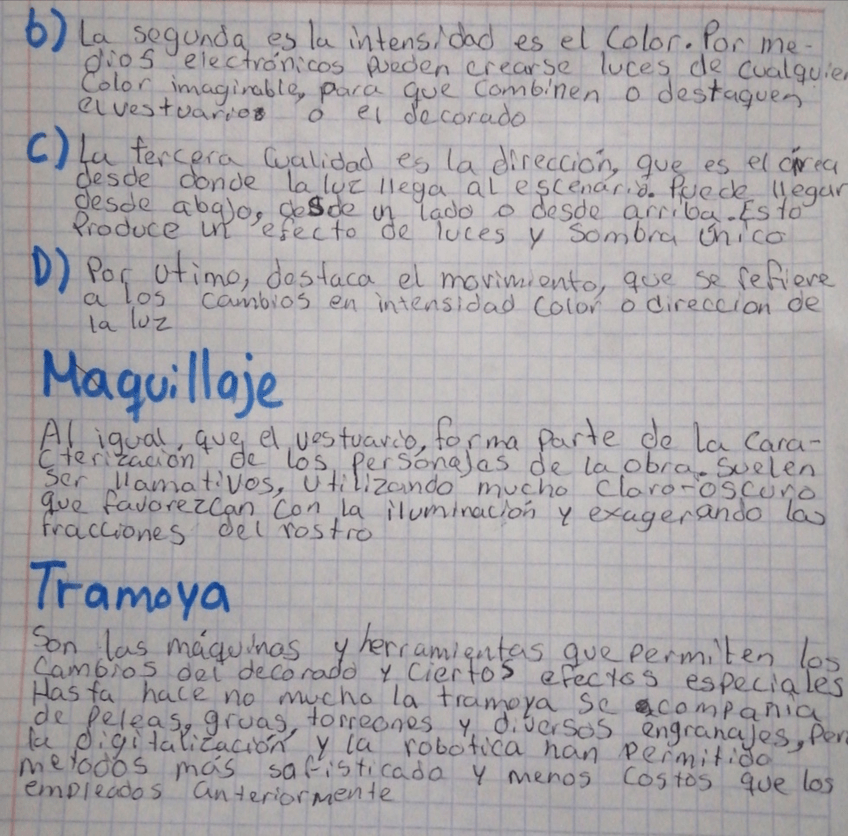 b) La segunda es la intensidad es el Color. Por me-
dios electrónicos pueden crearse luces de cualquier
Color imaginable, para que combinen o destaquen
el vestuario o el decorado
C) La tercera Cualidad es la dirección, que es el área
desde donde la luz llega al escenario. Puede llegar
desde abajo, desde un lado o desde arriba. Esto
Produce un efecto de luces y sombra único
D) Por utimo, destaca el movimiento, que se refiere
a los cambios en intensidad Color o direccion de
la luz
Maquillaje
Al igual, que el vestuario, forma parte de la Cara-
cterización de los personajes de la obra. Suelen
Ser llamativos, utilizando mucho Claro-oscuro
que favorezcan con la iluminación y exagerando las
fracciones del rostro
Tramoya
Son las máquinas y herramientas que permiten los
Cambios del decorado y Ciertos efectos especiales
Hasta hace no mucho la tramoya se compania
de Peleas, gruas, torreones y diversos engranajes, Per
la digitalización y la robotica han permitido
metodos más sofisticado y menos Costos que los
empleados anteriormente